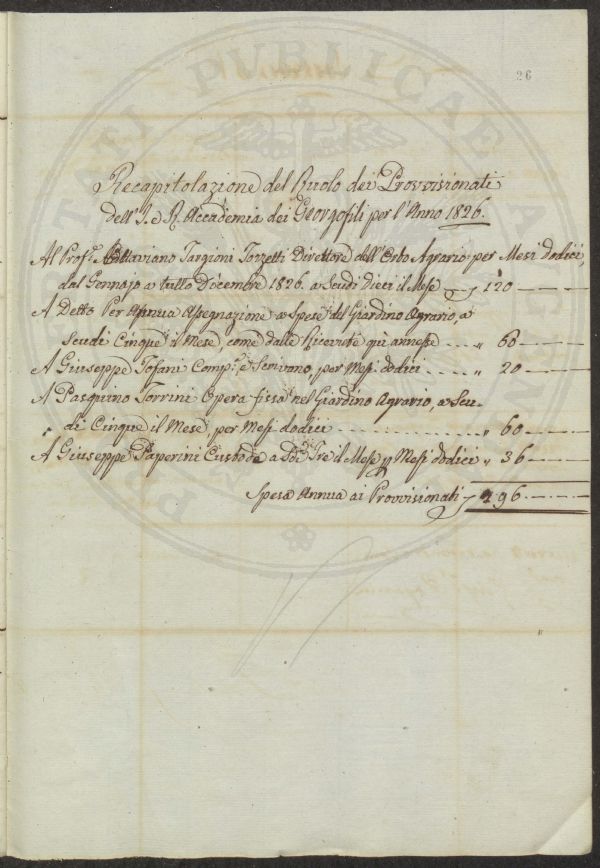 PUBLICAE
26
Recapitolazione del Ruolo dei Provvisionati
dell'I. e R. Accademia dei Georgofili per l'Anno 1826.
Al Prof.e Ottaviano Targioni Tozzetti Direttore dell'Orto Agrario per Mesi dodici,
dal Gennajo a tutto Dicembre 1826. a Scudi Dieci il Mese 120
A Detto Per Annua Assegnazione a Spese del Giardino Agrario, a
Scudi Cinque il Mese, come dalle Ricevute qui annesse .... „ 60
A Giuseppe Tofani Comp.ta e Scrivano, per Mesi dodici ..... „ 20
A Pasquino Torrini Opera fissa nel Giardino Agrario, a Scu-
di Cinque il Mese, per Mesi dodici .................. „ 60
A Giuseppe Paperini Custode a Sdi Tre il Mese p Mesi dodici „ 36
Spesa Annua ai Provvisionati 296